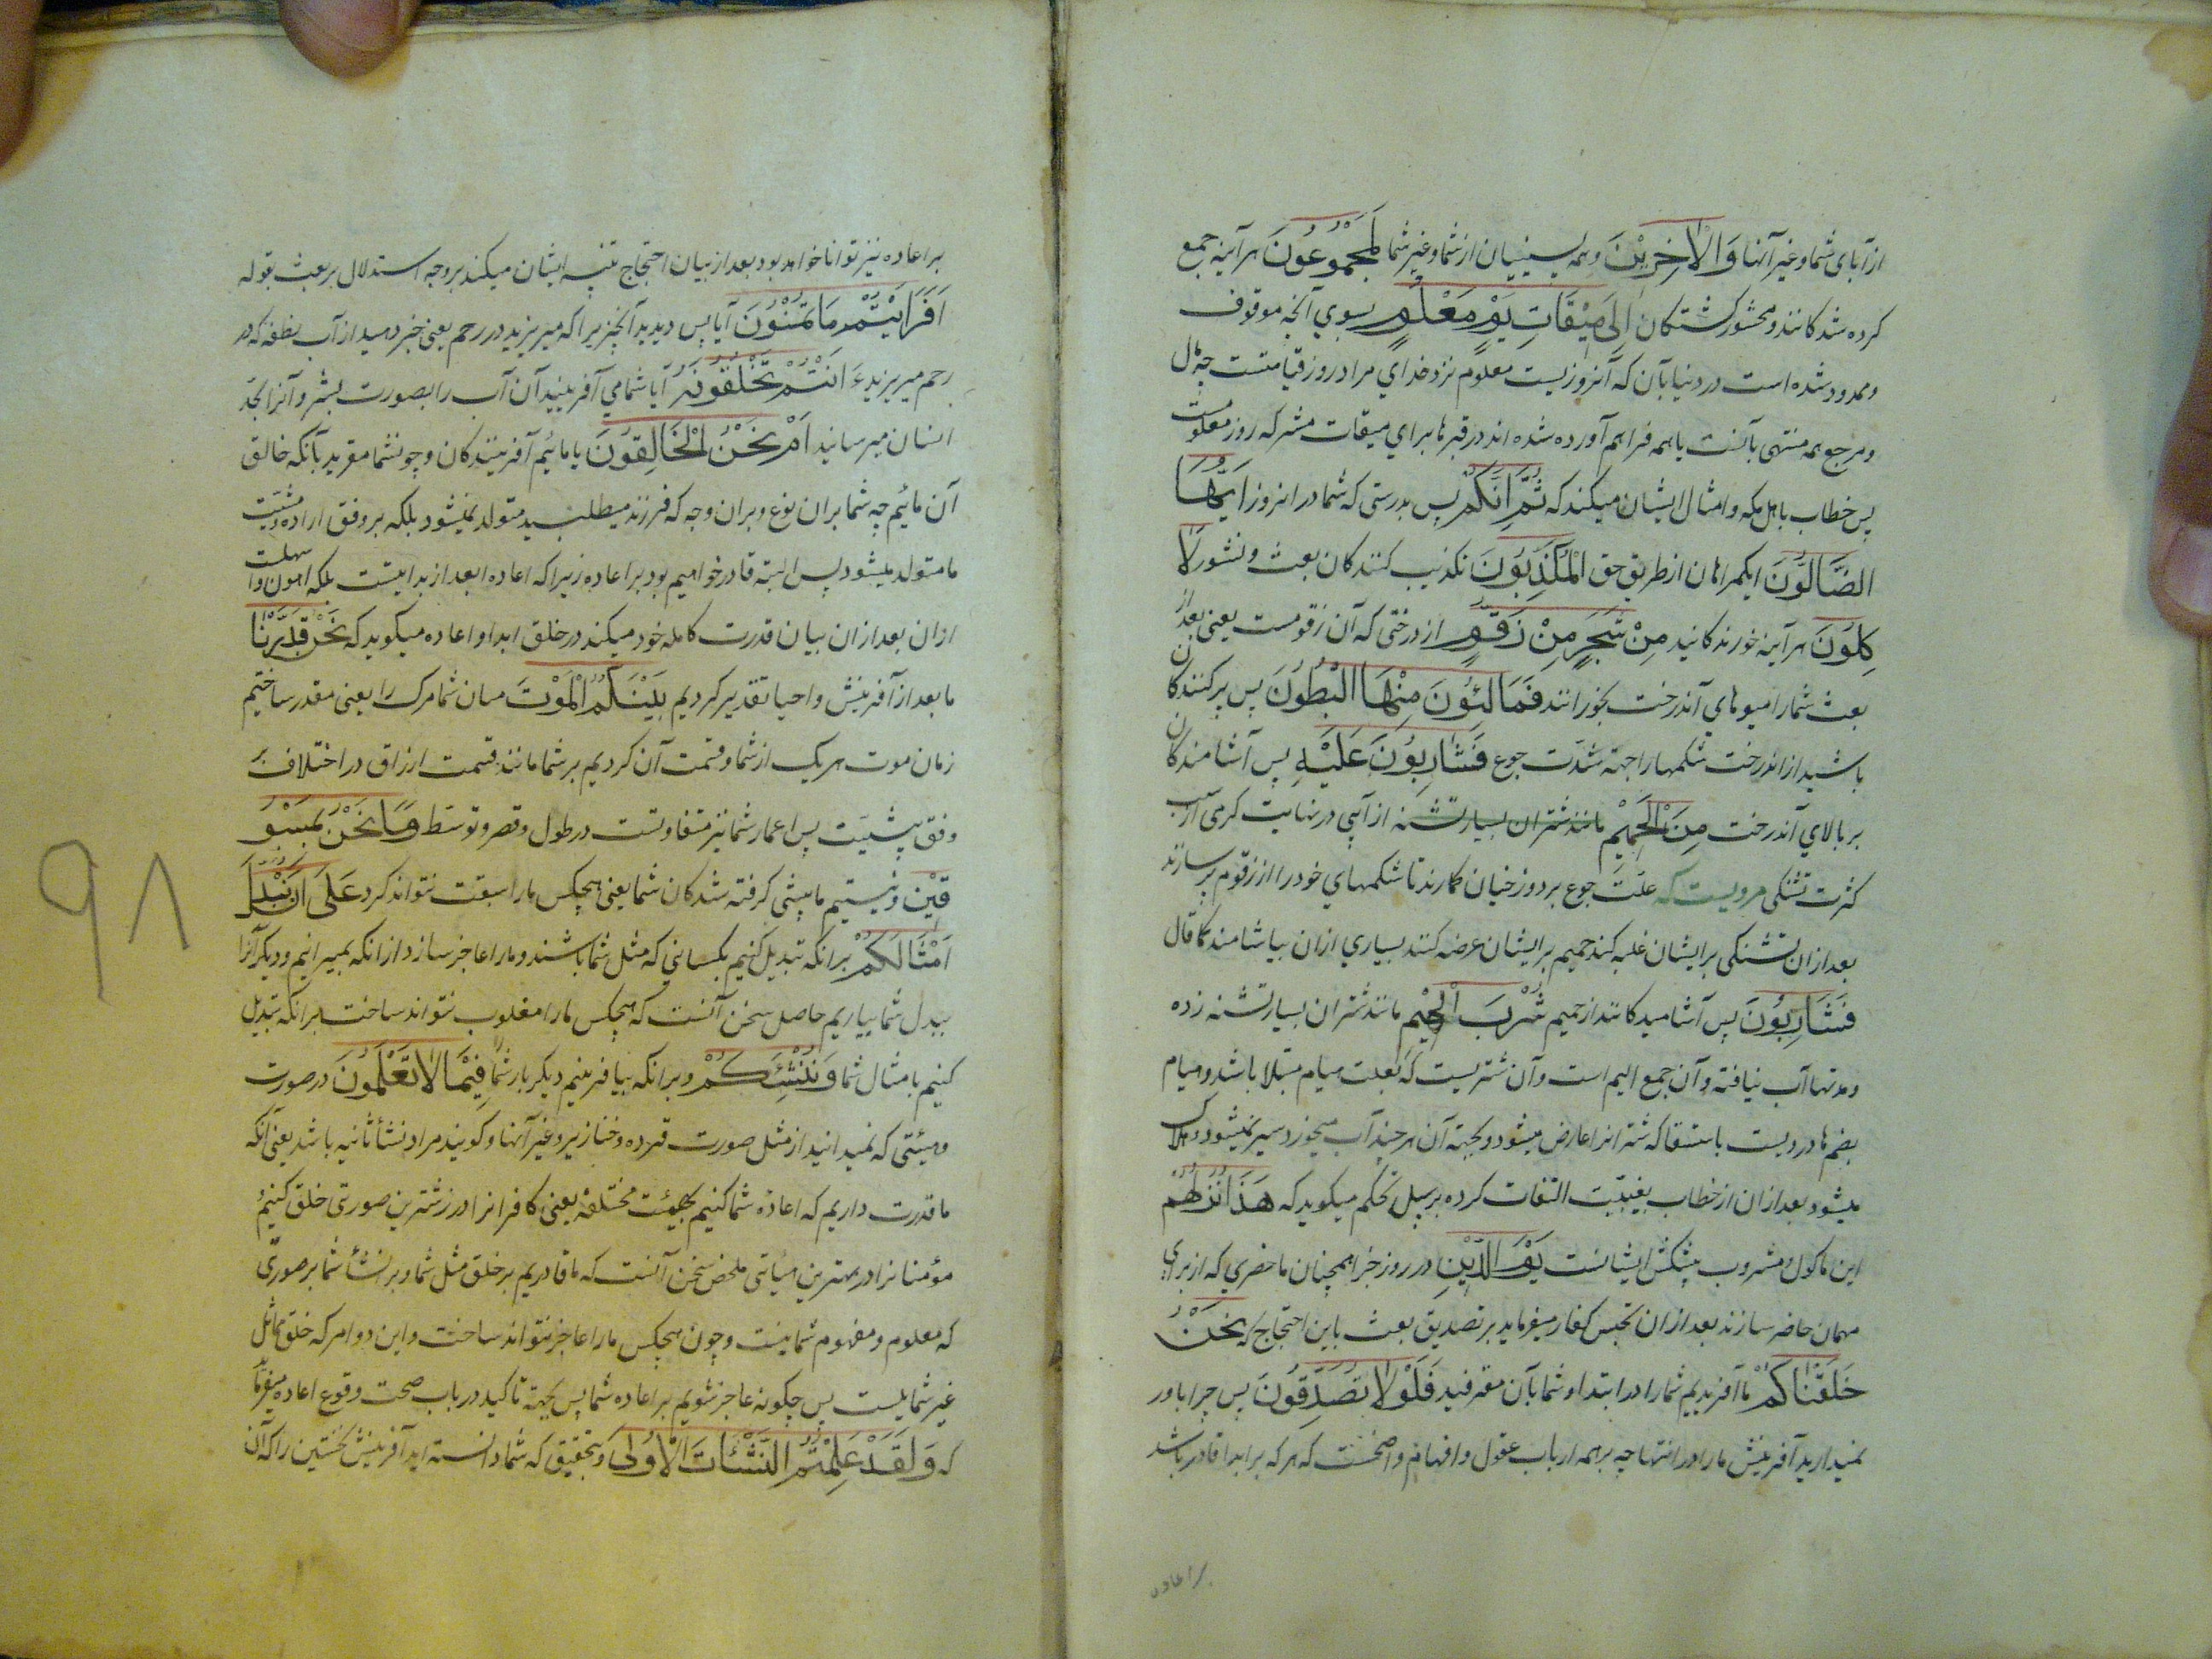 از آبای شما و غیر آنها وَالْاٰخِرِیْنَ و همه پسینیان از شما و غیر شما لَمَجْمُوْعُونَ هر آینه جمع
کرده شدکانند و محشور کشتکان اِلیٰ مِیْقَاتِ یَوْمٍ مَعْلُومٍ بسوی آنچه موقوف
و محدود شده است در دنیا بآن که آنروزیست معلوم نزد خدای مراد روز قیامتست چه مآل
و مرجع همه منتهی بآنست یا همه فراهم آورده شده اند در قبرها برای میقات مشر که روز معلومست
پس خطاب باهل مکه و امثال ایشان میکند که ثُمَّ اِنَّکُمْ پس بدرستی که شما در انروز اَیُّهَا
الضَّالُّوْنَ ایکمراهان از طریق حق الْمُکَذِّبُوْنَ تکذیب کنندکان بعث و نشور لَاٰ
کِلُوْنَ هر آینه خورندکانید مِنْ شَجَرٍ مِنْ زَقُّومٍ از درختی که آن زقومست یعنی بعد از
بعث شما را میوهای آندرخت بخورانند فَمَالِئُوْنَ مِنْهَا الْبُطُوْنَ پس پر کنندکان
باشید از اندرخت شکمها را جهة شدّت جوع فَشَارِبُوْنَ عَلَیْهِ پس آشامندکان
بر بالای آندرخت مِنَ الْحَمِیْمِ مانند شتران بسیار تشنه از آبی در نهایت کرمی از سبب
کثرت تشنکی مرویست که علّت جوع بر دوزخیان کمارند تا شکمهای خود را از زقوم پر سازند
بعد از ان تشنکی بر ایشان غلبه کند حمیم بر ایشان عرضه کنند بسیاری از ان بیاشامند کما قال
فَشَارِبُوْنَ پس آشامیدکانند از حمیم شُرْبَ الْهِیْمِ مانند شتران بسیار تشنه زده
و مدتها آب نیافته و آن جمع الهیم است و آن شتریست که بعلت هیام مبتلا باشد و هیام
بضم ها دردیست باستسقا که شتر انرا عارض میشود و بجهة آن هر چند آب میخورد سیر نمیشود و هلاک
میشود بعد از ان از خطاب بغیبت التفات کرده بر سبیل تحکم میکوید که هَذَا نُزُلُهُمْ
این ماکول و مشروب پیشکش ایشانست یَوْمَ الدِّیْنِ در روز جزا همچنان ما حضری که از برای
مهمان حاضر سازند بعد از ان تجبس کفار میفرماید بر تصدیق بعث باین احتجاج که نَحْنُ
خَلَقْنَاکُمْ ما آفریدیم شما را در ابتدا و شما بآن معترفید فَلَوْلَا تُصَدِّقُوْنَ پس چرا باور
نمیدارید آفرینش ما را در انتها چه بر همه ارباب عقول و افهام واضحست که هر که بر ابدا قادر باشد
بر اعاده
بر اعاده نیز توانا خواهد بود بعد از بیان احتجاج تنبیه ایشان میکند بر وجه استدلال بر بعث بقوله
اَفَرَاَیْتُمْ مَا تُمْنُوْنَ آیا پس دیدید آنچیزیرا که میریزید در رحم یعنی خبر دهید از آب نطفه که در
رحم میریزید ءَ اَنْتُمْ تَخْلُقُوْنَهُ آیا شما می آفرینید آن آب را بصورت بشر و آنرا بحدّ
انسان میرسانید اَمْ نَحْنُ الْخَالِقُوْنَ یا مائیم آفرینندکان و چون شما مقرید بآنکه خالق
آن مائیم چه شما بران نوع و بران وجه که فرزند میطلبید متولد نمیشود بلکه بر وفق اراده و مشیّت
ما متولد میشود پس البته قادر خواهیم بود بر اعاده زیرا که اعاده ابعد از بدا نیست بلکه اهون و اسهلست
ازان بعد ازان بیان قدرت کامله خود میکند در خلق ابدا و اعاده میکوید که نَحْنُ قَدَّرْنَا
ما بعد از آفرینش و احیا تقدیر کردیم بَیْنَکُمُ الْمَوْتَ میان شما مرک را یعنی مقدر ساختیم
زمان موت هر یک از شما و قسمت آن کردیم بر شما مانند قسمت ارزاق در اختلاف بر
وفق مشیّت پس اعمار شما نیز متفاوتست در طول و قصر و توسّط وَمَا نَحْنُ بِمَسْبُوْ
قِیْنَ و نیستیم ما پیشی کرفته شدکان شما یعنی هیچکس ما را سبقت نتواند کرد عَلیٰ اَنْ نُبَدِّلَ
اَمْثَالَکُمْ بر انکه تبدیل کنیم بکسانی که مثل شما باشند و ما را عاجز سازد از انکه بمیرانیم و دیکر آنرا
ببدل شما بیاریم حاصل سخن آنست که هیچکس ما را مغلوب نتواند ساخت بر انکه تبدیل
کنیم بامثال شما وَنُنْشِئَکُمْ و بر انکه بیافرینیم دیکر بار شما را فِیْمَا لَا تَعْلَمُوْنَ در صورت
و هیئتی که نمیدانید از مثل صورت قرده و خنازیر و غیر آنها و کویند مراد نشأ ثانیه باشد یعنی آنکه
ما قدرت داریم که اعادهٔ شما کنیم بهیئت مختلفه یعنی کافرانرا در زشترین صورتی خلق کنیم و
مؤمنانرا در بهترین هیأتی ملخص سخن آنست که ما قادریم بر خلق مثل شما و بر انشأ شما بر صورتی
که معلوم و مفهوم شما نیست و چون هیچکس ما را عاجز نتواند ساخت و این دو امر که خلق مماثل
غیر شما یلست پس چکونه عاجز شویم بر اعاده شما پس بجهة تاکید در باب صحت وقوع اعاده میفرماید
که وَلَقَدْ عَلِمْتُمُ النَّشْئَاتَ الْاُوْلیٰ و بتحقیق که شما دانسته اید آفرینش نخستین را که آن
۹۸